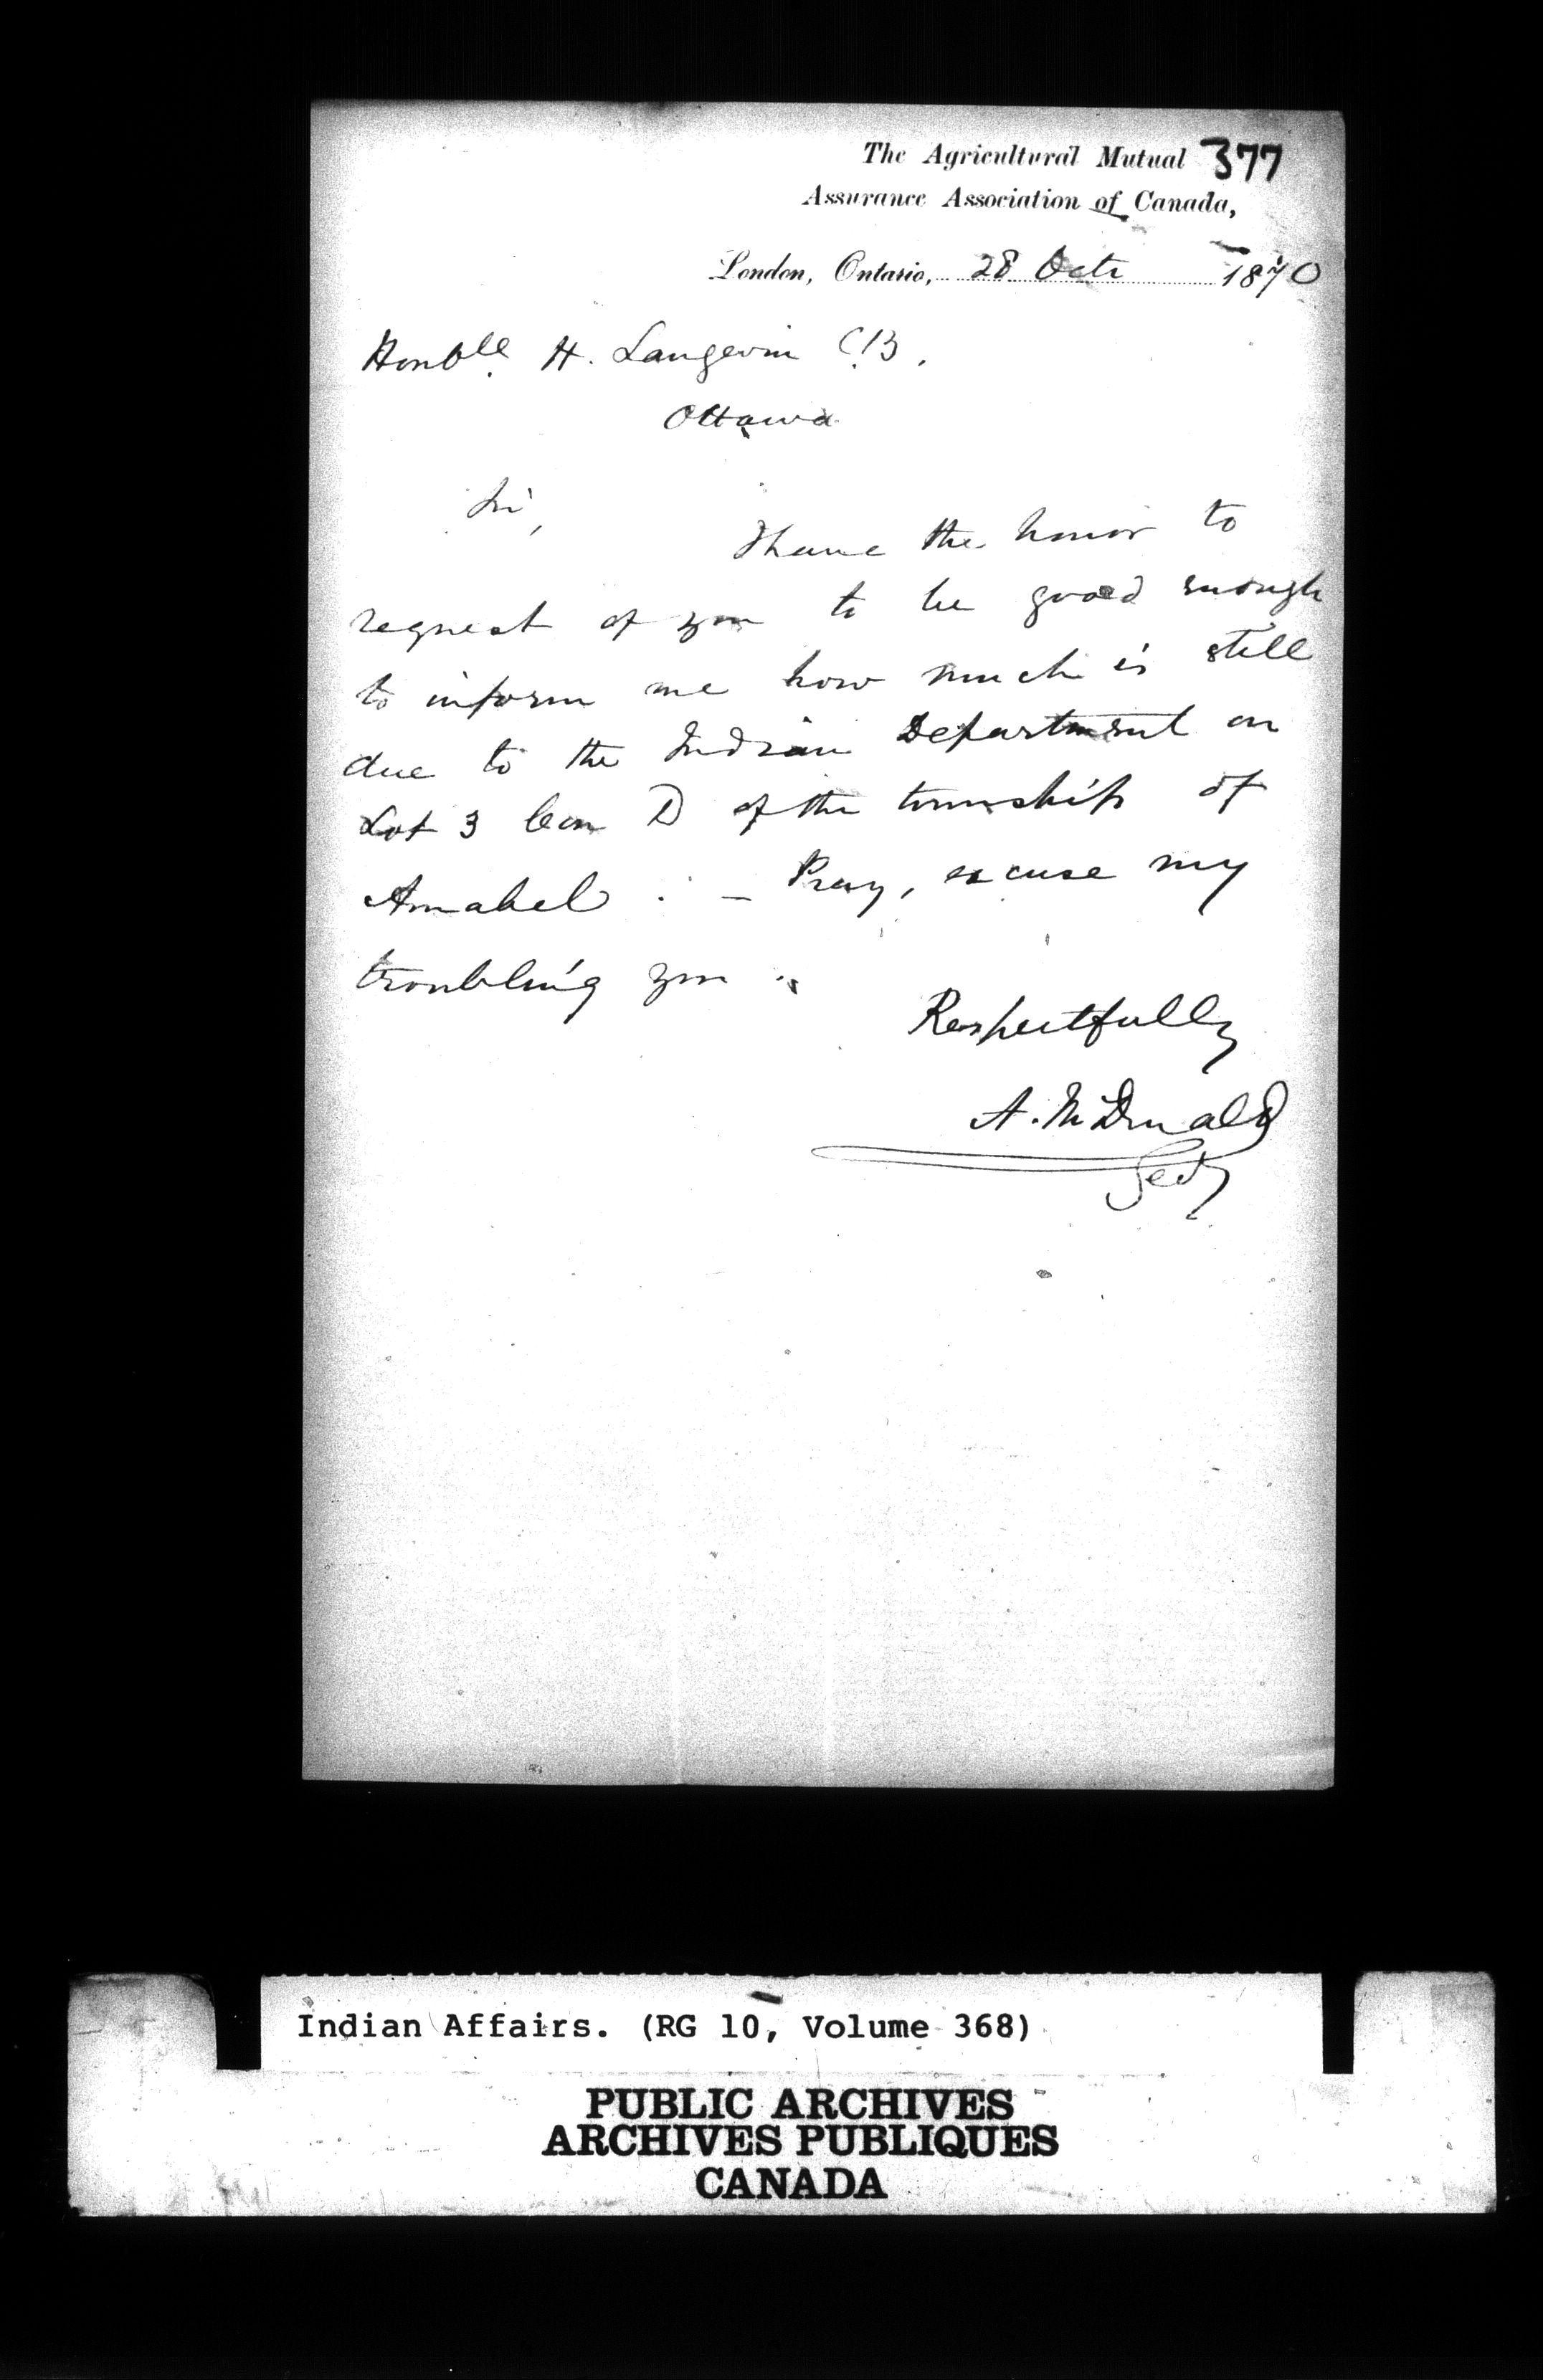 The Agricultural Mutual 377
Assurance Association of Canada,
London, Ontario, 28 Octr 1870
Honble H. Langevin C.B.
Ottawa
Sir,
I have the honor to
request of you to be good enough
to inform me how much is still
due to the Indian Department on
Lot 3 Con D of the township of
Amabel . – Pray, excuse my
troubling you .
Respectfully
A. McDonald
Secty
Indian Affairs. (RG 10, Volume 368)
PUBLIC ARCHIVES
ARCHIVES PUBLIQUES
CANADA